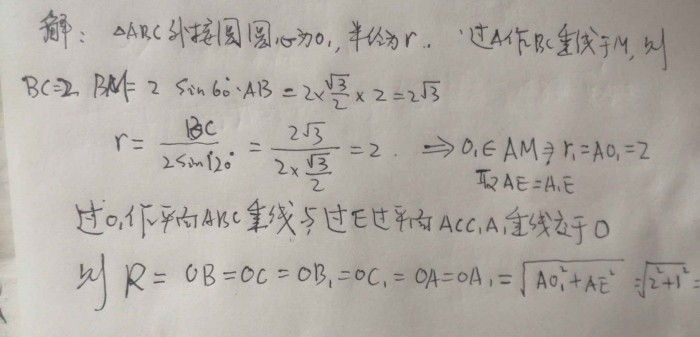 解: △ABC外接圆圆心为O₁, 半径为r. 过A作BC垂线于M, 则
BC=2 BM=2 sin60°·AB=2×√3/2×2=2√3
r=BC/2sin120°=2√3/(2×√3/2)=2. ⇒O₁∈AM ∋ r₁=AO₁=2
取AE=A₁E
过O₁作平面ABC垂线与过E过平面ACC₁A₁垂线交于O
则R=OB=OC=OB₁=OC₁=OA=OA₁=√(AO₁²+AE²)=√(2²+1²)=